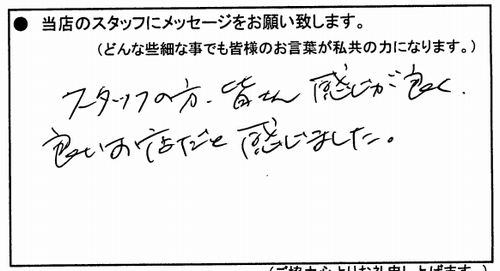 ● 当店のスタッフにメッセージをお願い致します。
（どんな些細な事でも皆様のお言葉が私共の力になります。）
スタッフの方、皆さん 感じが良く、
良いお店だと感じました。
（ご協力心よりお礼申し上げます。）